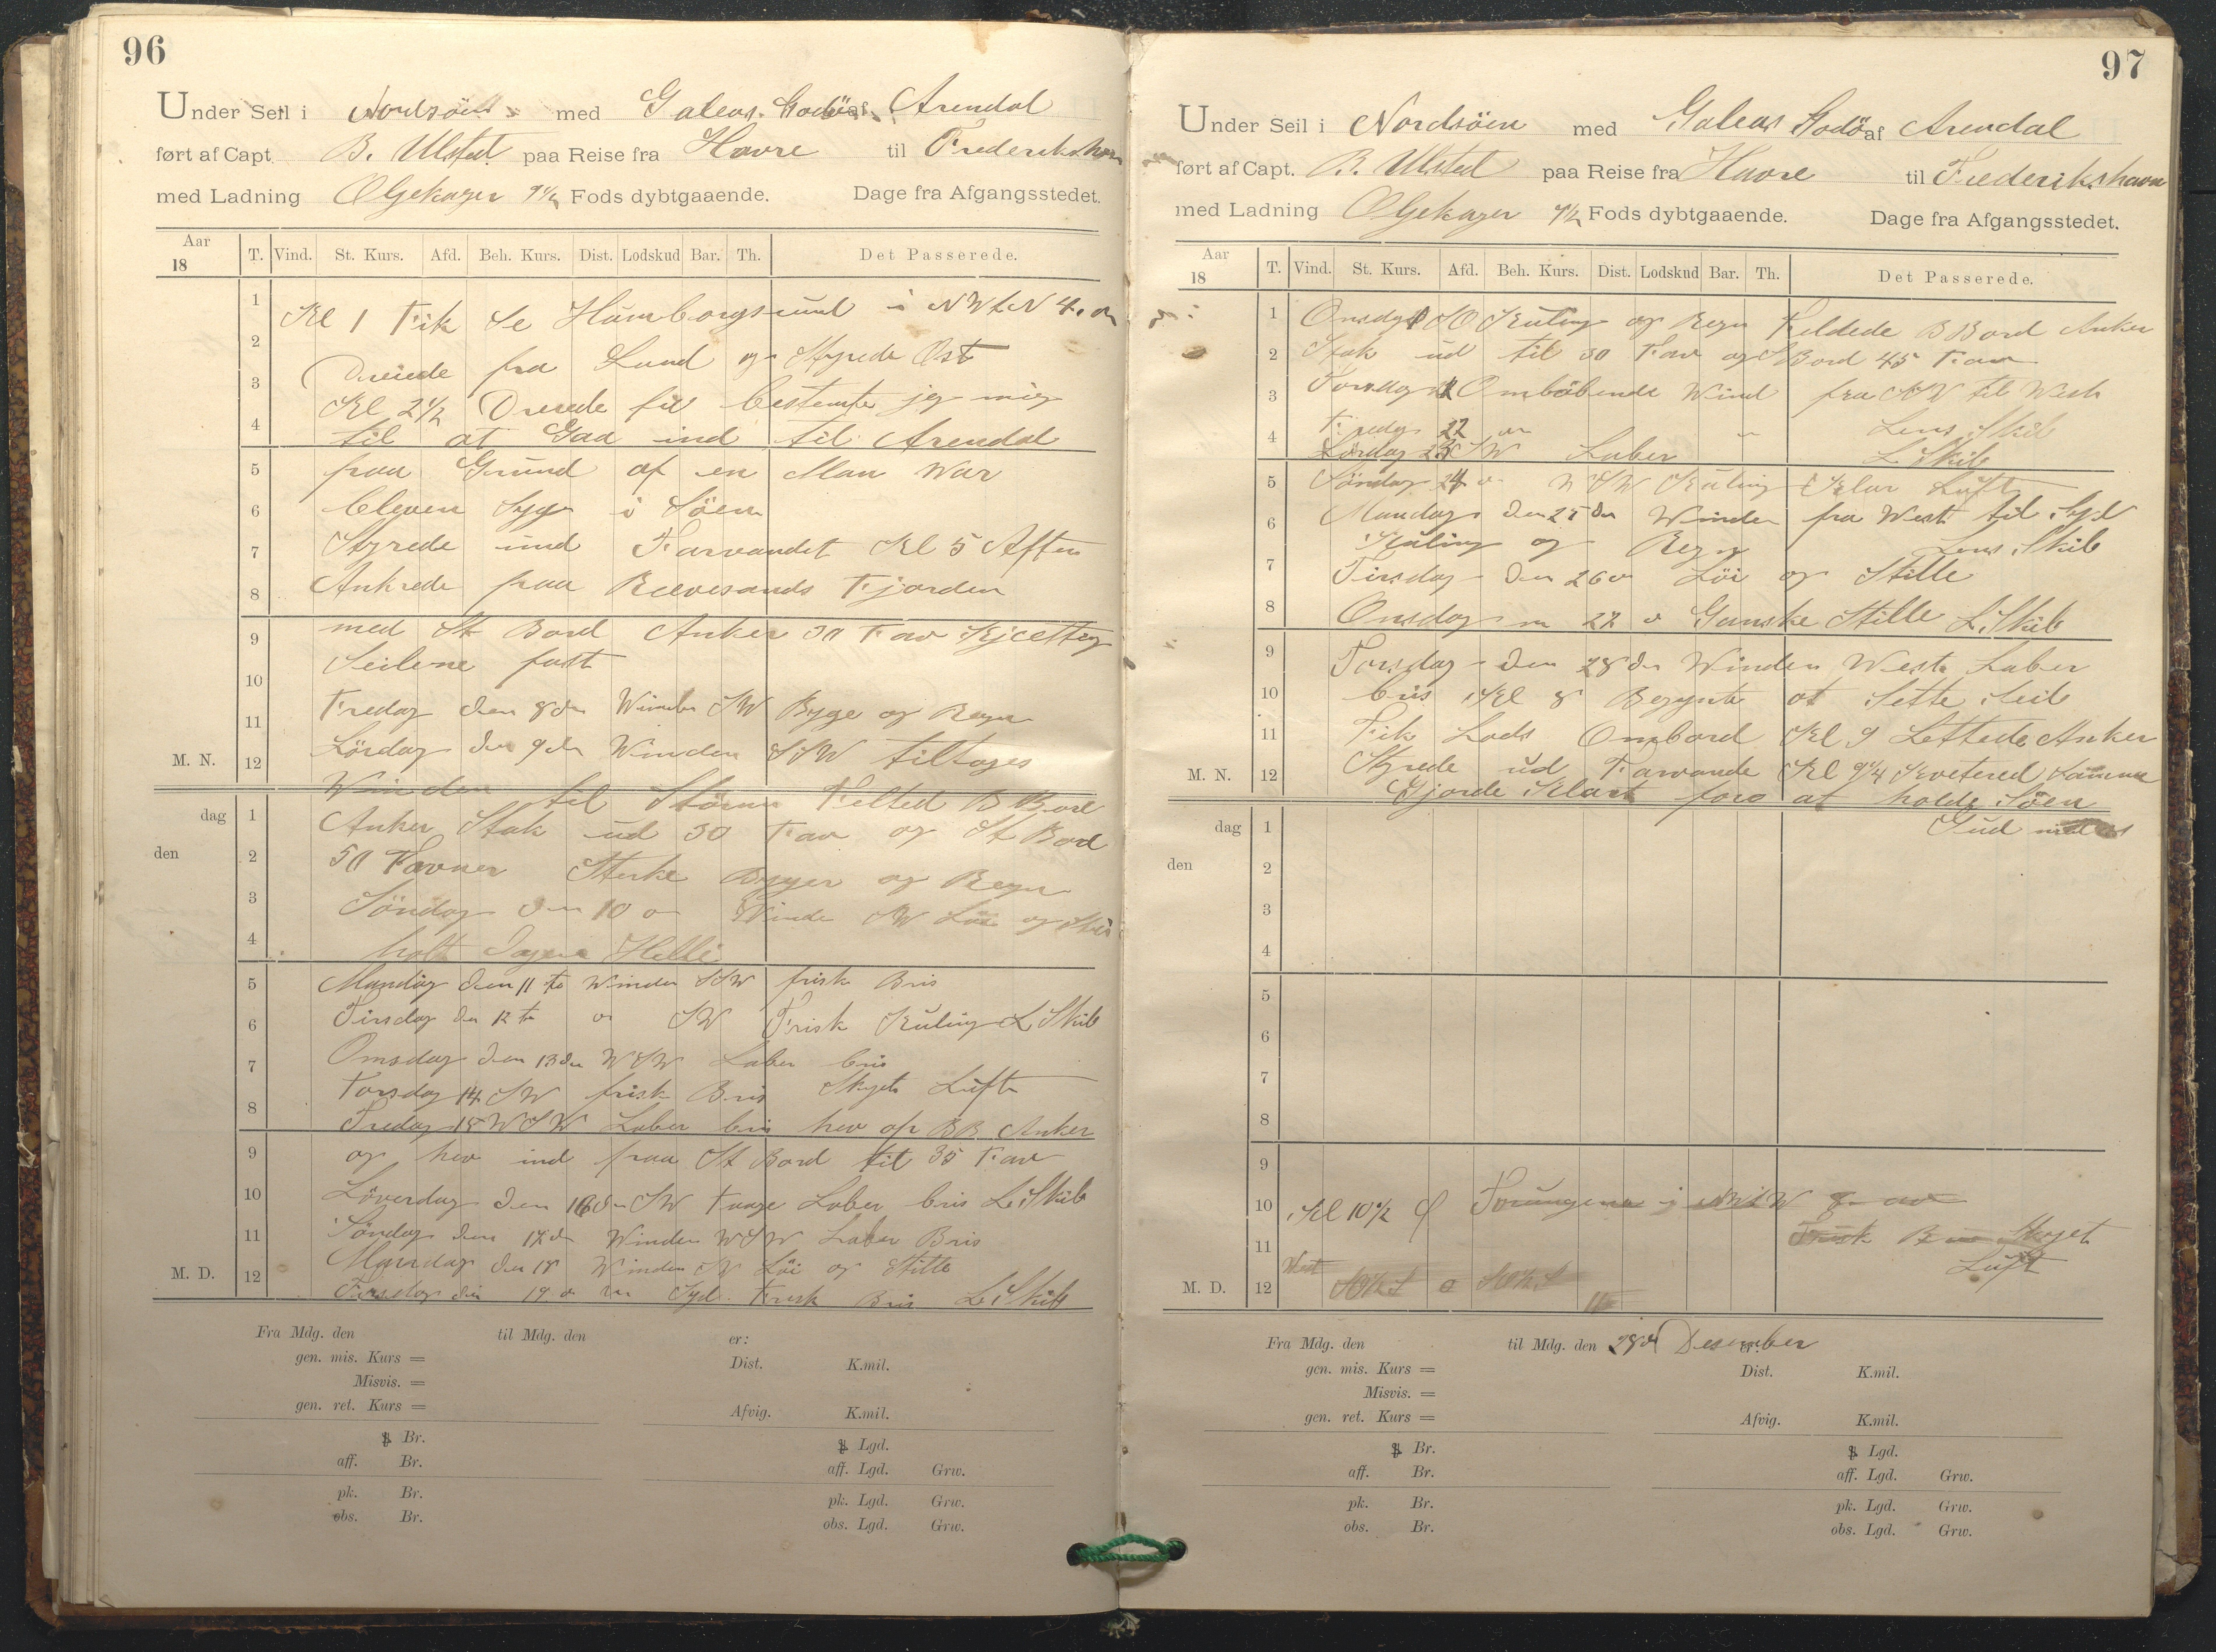 96
Under Seil i Nordsöen med Galeas Godö af Arendal
ført af Capt. B. Ulsted paa Reise fra Havre til Frederikshavn
med Ladning Oljekager 9 1/2 Fods dybtgaaende. Dage fra Afgangsstedet.
Aar 18 T. Vind. St. Kurs. Afd. Beh. Kurs. Dist. Lodskud Bar. Th. Det Passerede.
1 Kl 1 Fik Se Humborgsund i NWtN 4.
2
Dreiede fra Land og Styrede Ost
3 Kl 2 1/2 Dreiede bestemte jeg mig
4 til at Gaa ind til Arendal
5 paa Grund af en Man War
6 bleven Syg i Söen
7 Styrede ind Farvandet Kl 5 Aften
8 Ankrede paa Revesands Fjorden
9 med St Bord Anker 30 Fav Kjetting
10 Seilene fast
11 Fredag den 8de Winden SW Byge og Regn
M. N. 12 Lördag den 9de Winden SSW tiltoges
Winden til Störm Felted B Bord
dag 1 Anker Stak ud 30 Fav og St Bord
den 2 50 Favner Sterke Byger og Regn
3 Söndag den 10 Winde SW Löi og
4 holt Dagen Hellig
5 Mandag den 11 te Winden SSW frisk Bris
6 Tirsdag den 12 te SW Frisk Kuling L Skib
7 Onsdag den 13de WSW Laber bris
Torsdag 14 SW frisk Bris Skyet Luft
8 Fredag 15 WSW Laber bris hev op BB Anker
9 og hev ind paa St Bord til 35 Fav
10 Löverdag den 16de SW Taage Laber bris L Skib
11 Söndag den 17de Winden WSW Laber Bris
Mandag den 18 Winden SW Löi og Stille
M. D. 12 Tirsdag den 19 Syd Frisk Bris L Skib
Fra Mdg. den til Mdg. den er:
gen. mis. Kurs = Dist. K.mil.
Misvis. =
gen. ret. Kurs = Afvig. K.mil.
Br. Lgd.
aff. Br. aff. Lgd. Grw.
pk. Br. pk. Lgd. Grw.
obs. Br. obs. Lgd. Grw.
97
Under Seil i Nordsöen med Galeas Godö af Arendal
ført af Capt. B. Ulsted paa Reise fra Havre til Frederikshavn
med Ladning Oljekager 9 1/2 Fods dybtgaaende. Dage fra Afgangsstedet.
Aar 18 T. Vind. St. Kurs. Afd. Beh. Kurs. Dist. Lodskud Bar. Th. Det Passerede.
1 Onsdag SO Kuling og Regn Feldede B Bord Anker
2 Stak ud til 30 Fav og S Bord 45 Fav
3 Torsdag Omböbende Wind fra NW til West
Fredag 22 Lens Skib
4 Lördag 23 SW Laber L Skib
5 Söndag 24 WSW Kuling Klar Luft
6 Mandag den 25 de Winden fra West til Syd
Kuling og Regn Lens Skib
7 Tirsdag den 26 Löi og Stille
8 Onsdag 27 Ganske Stille L Skib
9 Torsdag den 28de Winden West Laber
10 bris Kl 8 Begynte at Sette Seil
11 Fik Lods Ombord Kl 9 Lettede Anker
M. N. 12 Styrede ud Farvande Kl 9 1/4 Kvitered Samme
Gjorde Klart fore at holde Söen
dag 1 Gud med os
den 2
3
4
5
6
7
8
9
10 Kl 10 1/2 Torungene i NWtW
11 Frisk Bris Skyet
West Luft
M. D. 12
Fra Mdg. den til Mdg. den 28de Desember er:
gen. mis. Kurs = Dist. K.mil.
Misvis. =
gen. ret. Kurs = Afvig. K.mil.
Br. Lgd.
aff. Br. aff. Lgd. Grw.
pk. Br. pk. Lgd. Grw.
obs. Br. obs. Lgd. Grw.